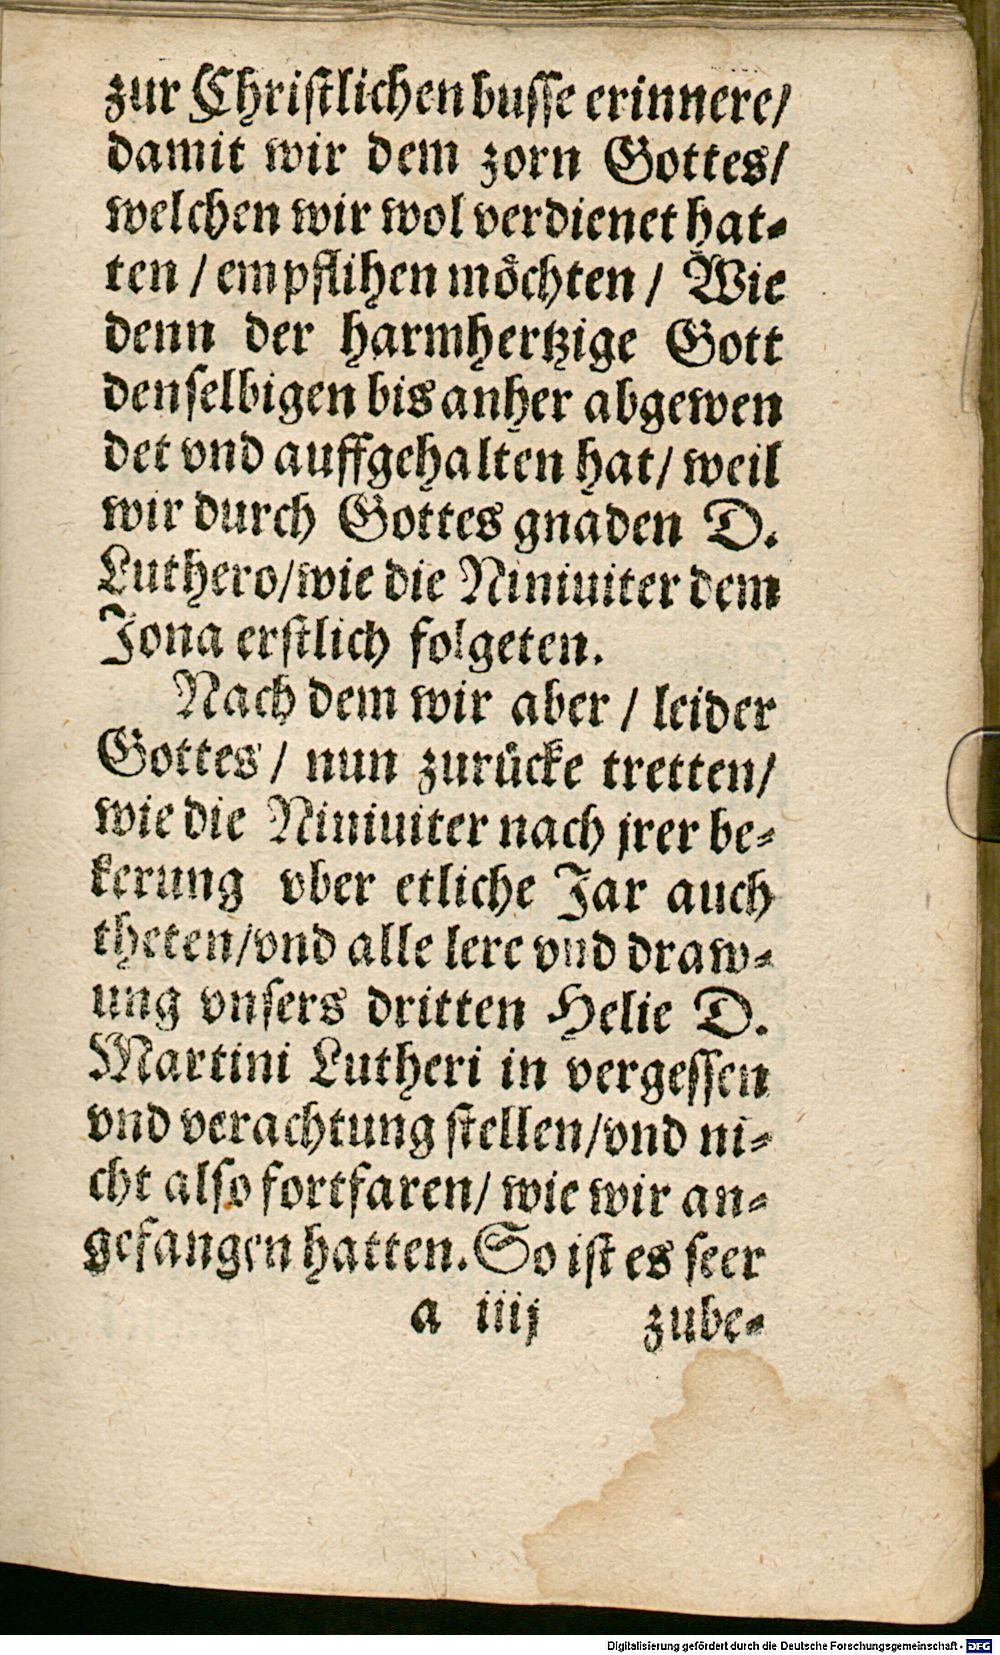 zur Christlichen busse erinnere/
damit wir dem zorn Gottes/
welchen wir wol verdienet hat-
ten / empflihen möchten / Wie
denn der harmhertzige Gott
denselbigen bis anher abgewen
det vnd auffgehalten hat/ weil
wir durch Gottes gnaden D.
Luthero/wie die Niniuiter dem
Jona erstlich folgeten.
Nach dem wir aber / leider
Gottes / nun zurücke tretten/
wie die Niniuiter nach jrer be-
kerung vber etliche Jar auch
theten/vnd alle lere vnd draw-
ung vnsers dritten Helie D.
Martini Lutheri in vergessen
vnd verachtung stellen/vnd ni-
cht also fortfaren/ wie wir an-
gefangen hatten. So ist es seer
a iiij zube-
Digitalisierung gefördert durch die Deutsche Forschungsgemeinschaft - DFG